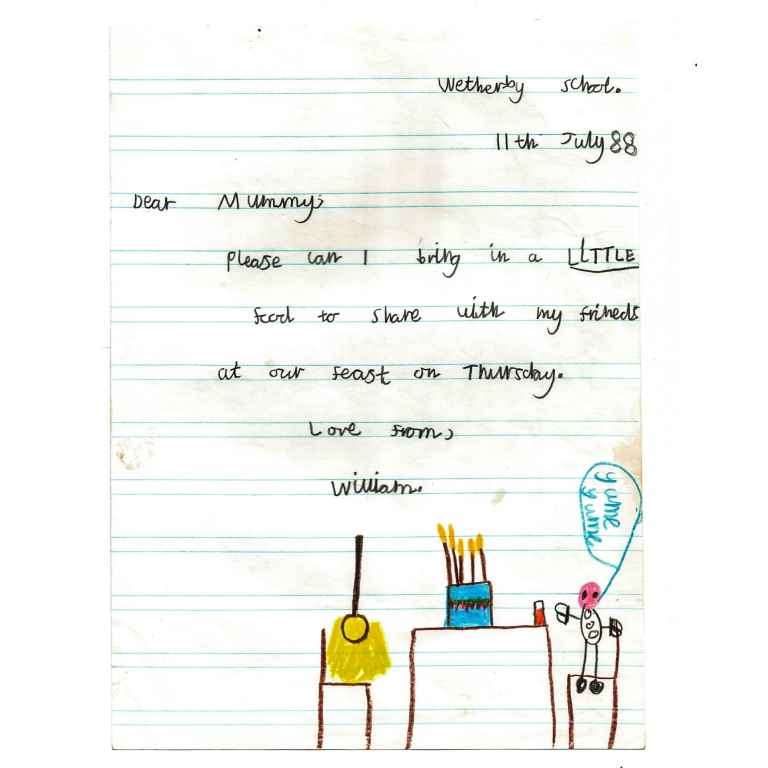 Wetherby school.
11th July 88
Dear Mummy,
please can I bring in a LITTLE
food to share with my frineds
at our feast on Thursday.
Love from,
William.
yume
yume